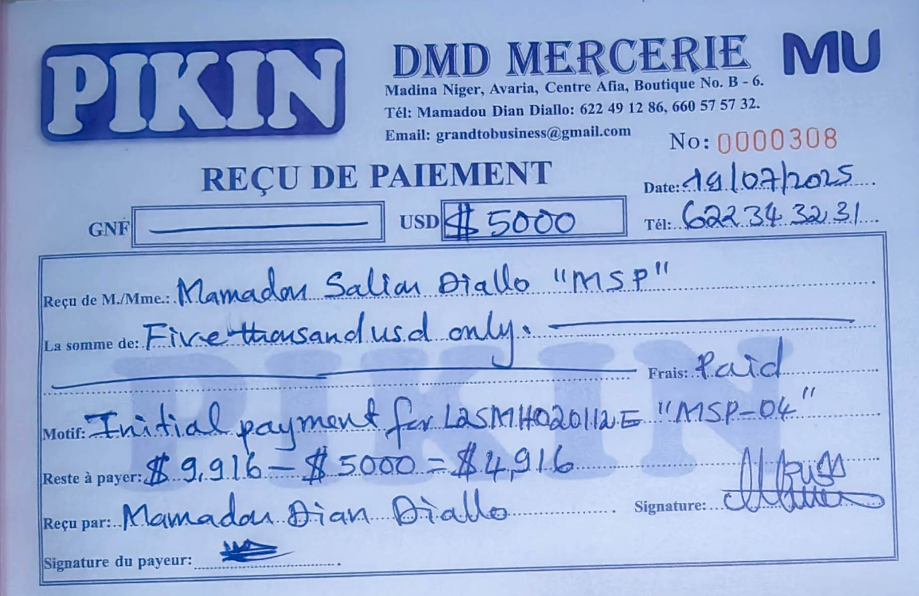 PIKIN
DMD MERCERIE MU
Madina Niger, Avaria, Centre Afia, Boutique No. B - 6.
Tél: Mamadou Dian Diallo: 622 49 12 86, 660 57 57 32.
Email: grandtobusiness@gmail.com
No: 0000308
REÇU DE PAIEMENT
Date: 19/07/2025
GNF USD $ 5000 Tél: 622 34 32 31
Reçu de M./Mme.: Mamadou Saliou Diallo "MSP"
La somme de: Five thousand usd only.
Frais: Paid
Motif: Initial payment for "MSP-04"
Reste à payer: $ 9,916 - $ 5000 = $4,916
Reçu par: Mamadou Dian Diallo Signature:
Signature du payeur:
PIKIN